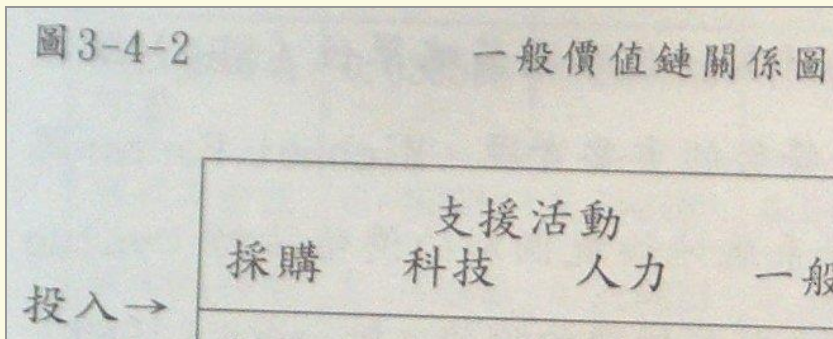 圖3-4-2 一般價值鏈關係圖
支援活動
採購 科技 人力 一般
投入→